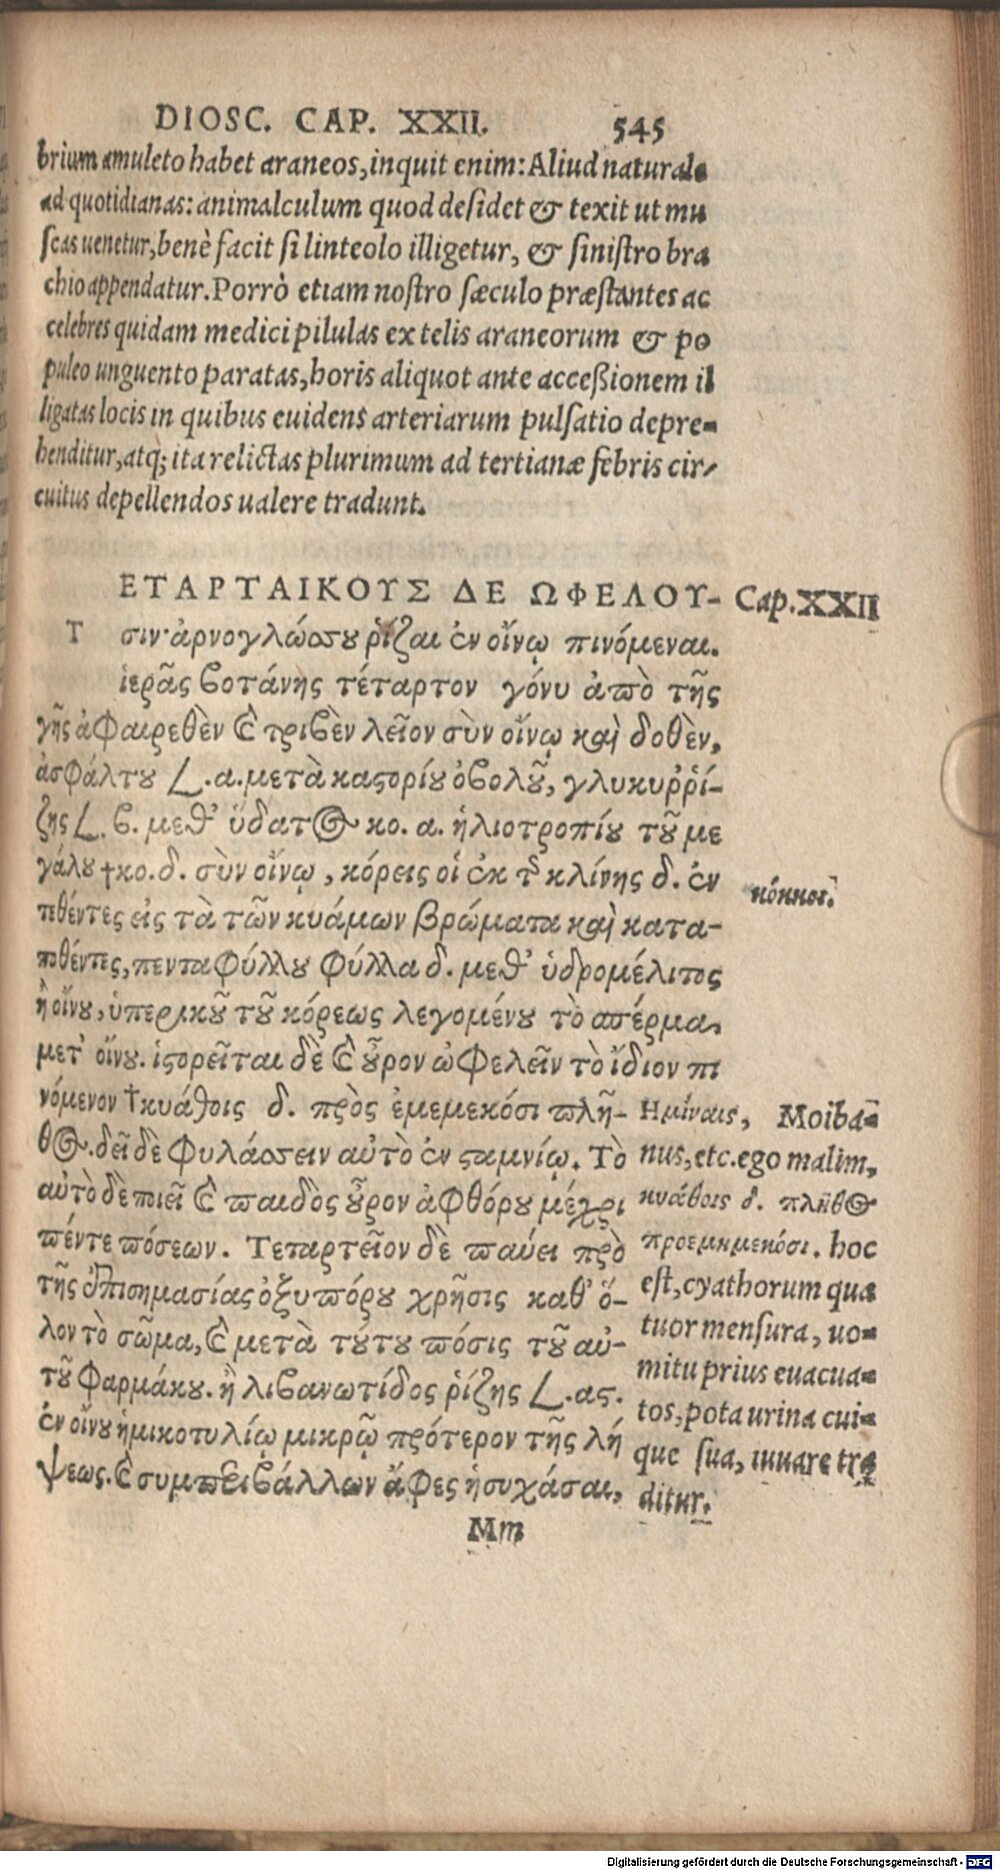 DIOSC. CAP. XXII. 545
brium amuleto habet araneos, inquit enim: Aliud naturale
ad quotidianas: animalculum quod desidet & texit ut mu
scas uenetur, benè facit si linteolo illigetur, & sinistro bra
chio appendatur. Porrò etiam nostro sæculo præstantes ac
celebres quidam medici pilulas ex telis araneorum & po
puleo unguento paratas, horis aliquot ante accessionem il
ligatas locis in quibus euidens arteriarum pulsatio depre-
henditur, atq; ita relictas plurimum ad tertianæ febris cir-
cuitus depellendos ualere tradunt.
ΕΤΑΡΤΑΙΚΟΥΣ ΔΕ ΩΦΕΛΟΥ- Cap. XXII
Τ σιν· ἀρνογλώσσου ῥίζαι ἐν οἴνῳ πινόμεναι.
ἱερᾶς βοτάνης τέταρτον γόνυ ἀπὸ τῆς
γῆς ἀφαιρεθὲν καὶ τριβὲν λεῖον σὺν οἴνῳ καὶ δοθὲν,
ἀσφάλτου L. α. μετὰ καστορίου ὀβολοῦ, γλυκυῤῥί-
ζης L. β. μεθ' ὕδατος κο. α. ἡλιοτροπίου τοῦ με
γάλου †κο. δ. σὺν οἴνῳ, κόρεις οἱ ἐκ τῆς κλίνης δ. ἐν
κόκκοι.
τιθέντες εἰς τὰ τῶν κυάμων βρώματα καὶ κατα-
ποθέντες, πενταφύλλου φύλλα δ. μεθ' ὑδρομέλιτος
ἢ οἴνου, ὑπερικοῦ τοῦ κόρεως λεγομένου τὸ σπέρμα
μετ' οἴνου. ἱστορεῖται δὲ καὶ οὖρον ὠφελεῖν τὸ ἴδιον πι
νόμενον †κυάθοις δ. πρὸς ἐμεμεκόσι πλῆ-
θος. δεῖ δὲ φυλάσσειν αὐτὸ ἐν σταμνίῳ. Τὸ
αὐτὸ δὲ ποιεῖ καὶ παιδὸς οὖρον ἀφθόρου μέχρι
πέντε πόσεων. Τεταρτεῖον δὲ παύει πρὸ
τῆς ἐπισημασίας ὀξυπόρου χρῆσις καθ' ὅ-
λον τὸ σῶμα, καὶ μετὰ τούτου πόσις τοῦ αὐ-
τοῦ φαρμάκου. ἢ λιβανωτίδος ῥίζης L. ας.
ἐν οἴνου ἡμικοτυλίῳ μικρῷ πρότερον τῆς λή
ψεως. καὶ συμπεριβάλλων ἄφες ἡσυχάσαι,
Ημίναις, Moiba-
nus, etc. ego malim,
κυάθοις δ. πλῆθος
προεμημεκόσι. hoc
est, cyathorum qua
tuor mensura, uo-
mitu prius euacua-
tos, pota urina cui-
que sua, iuuare tra
ditur.
Mm
Digitalisierung gefördert durch die Deutsche Forschungsgemeinschaft - DFG